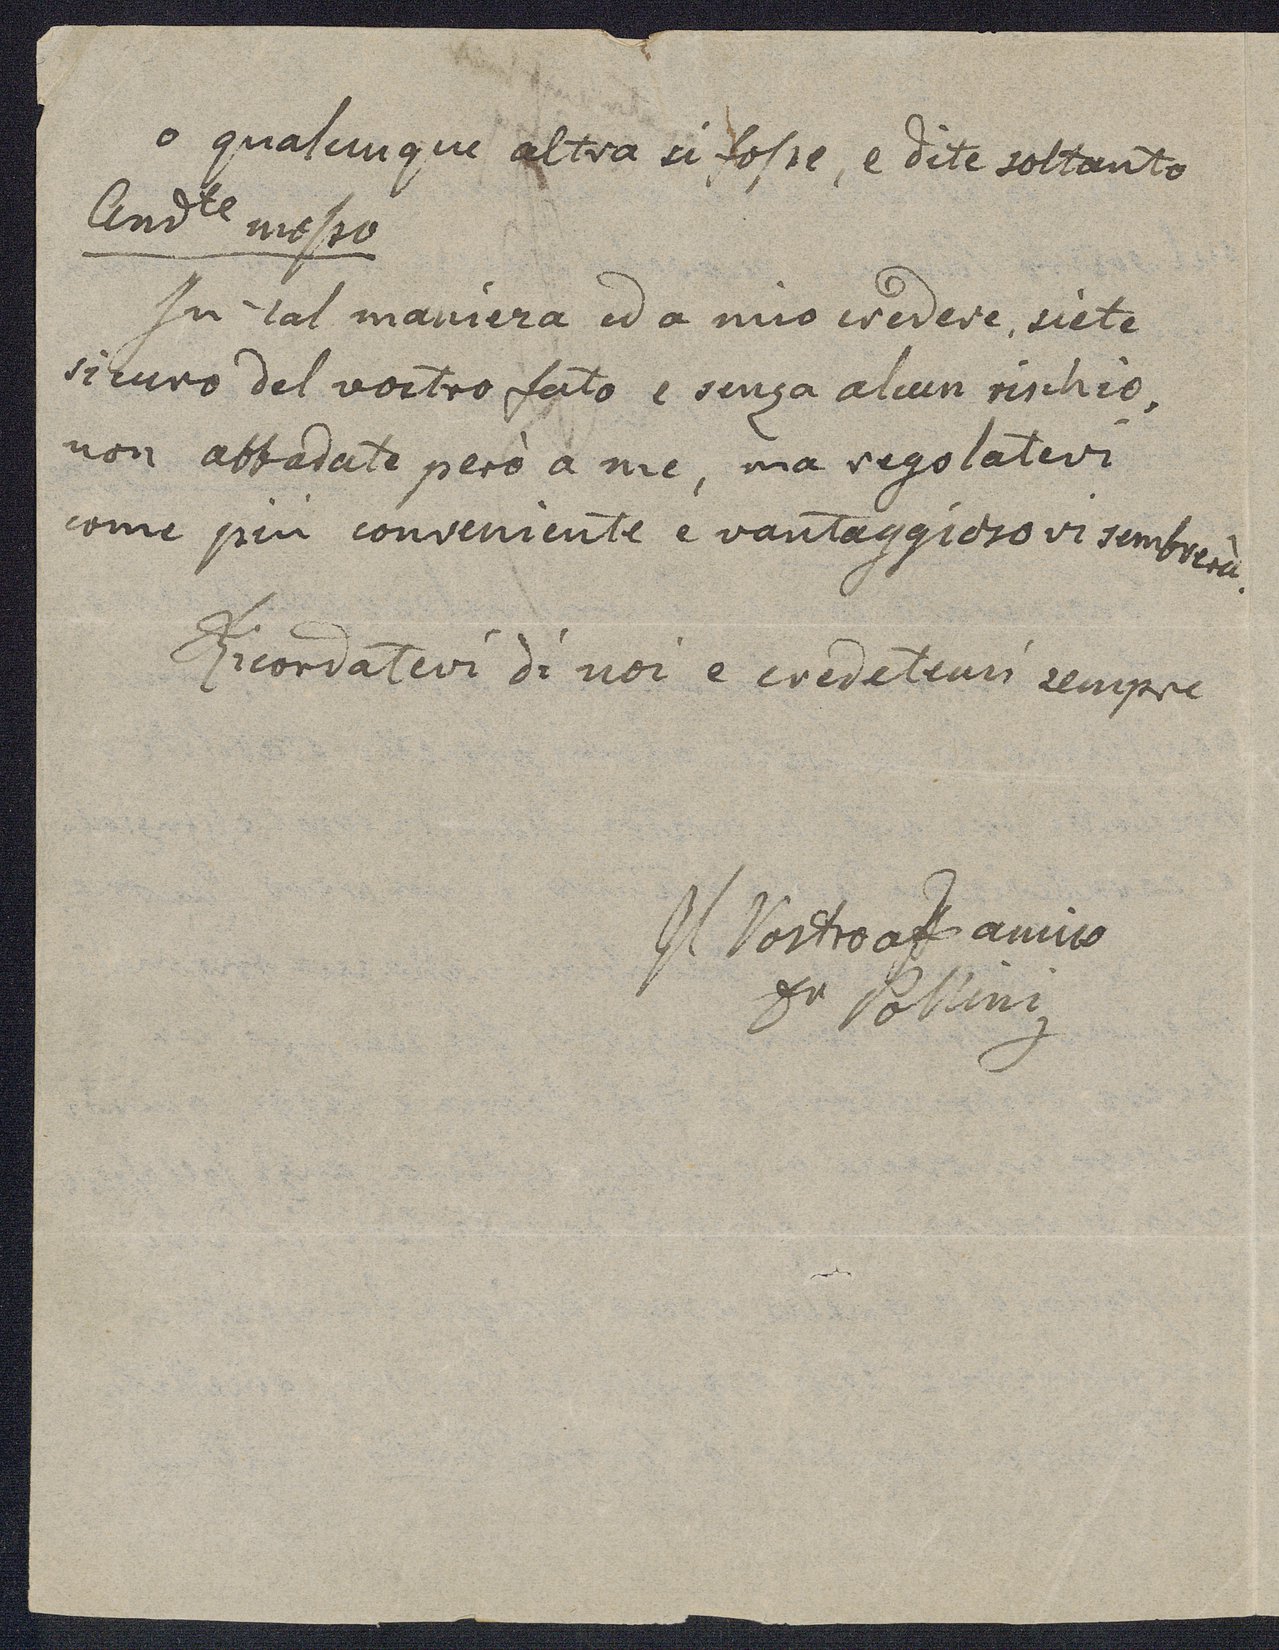 o qualunque altra si fosse, e dite soltanto
Andte mosso
In tal maniera ed a mio credere, siete
sicuro del vostro fato e senza alcun rischio,
non abbadate però a me, ma regolatevi
come più conveniente e vantaggioso vi sembrerà.
Ricordatevi di noi e credetemi sempre
Il Vostro aff amico
Fr Pollini